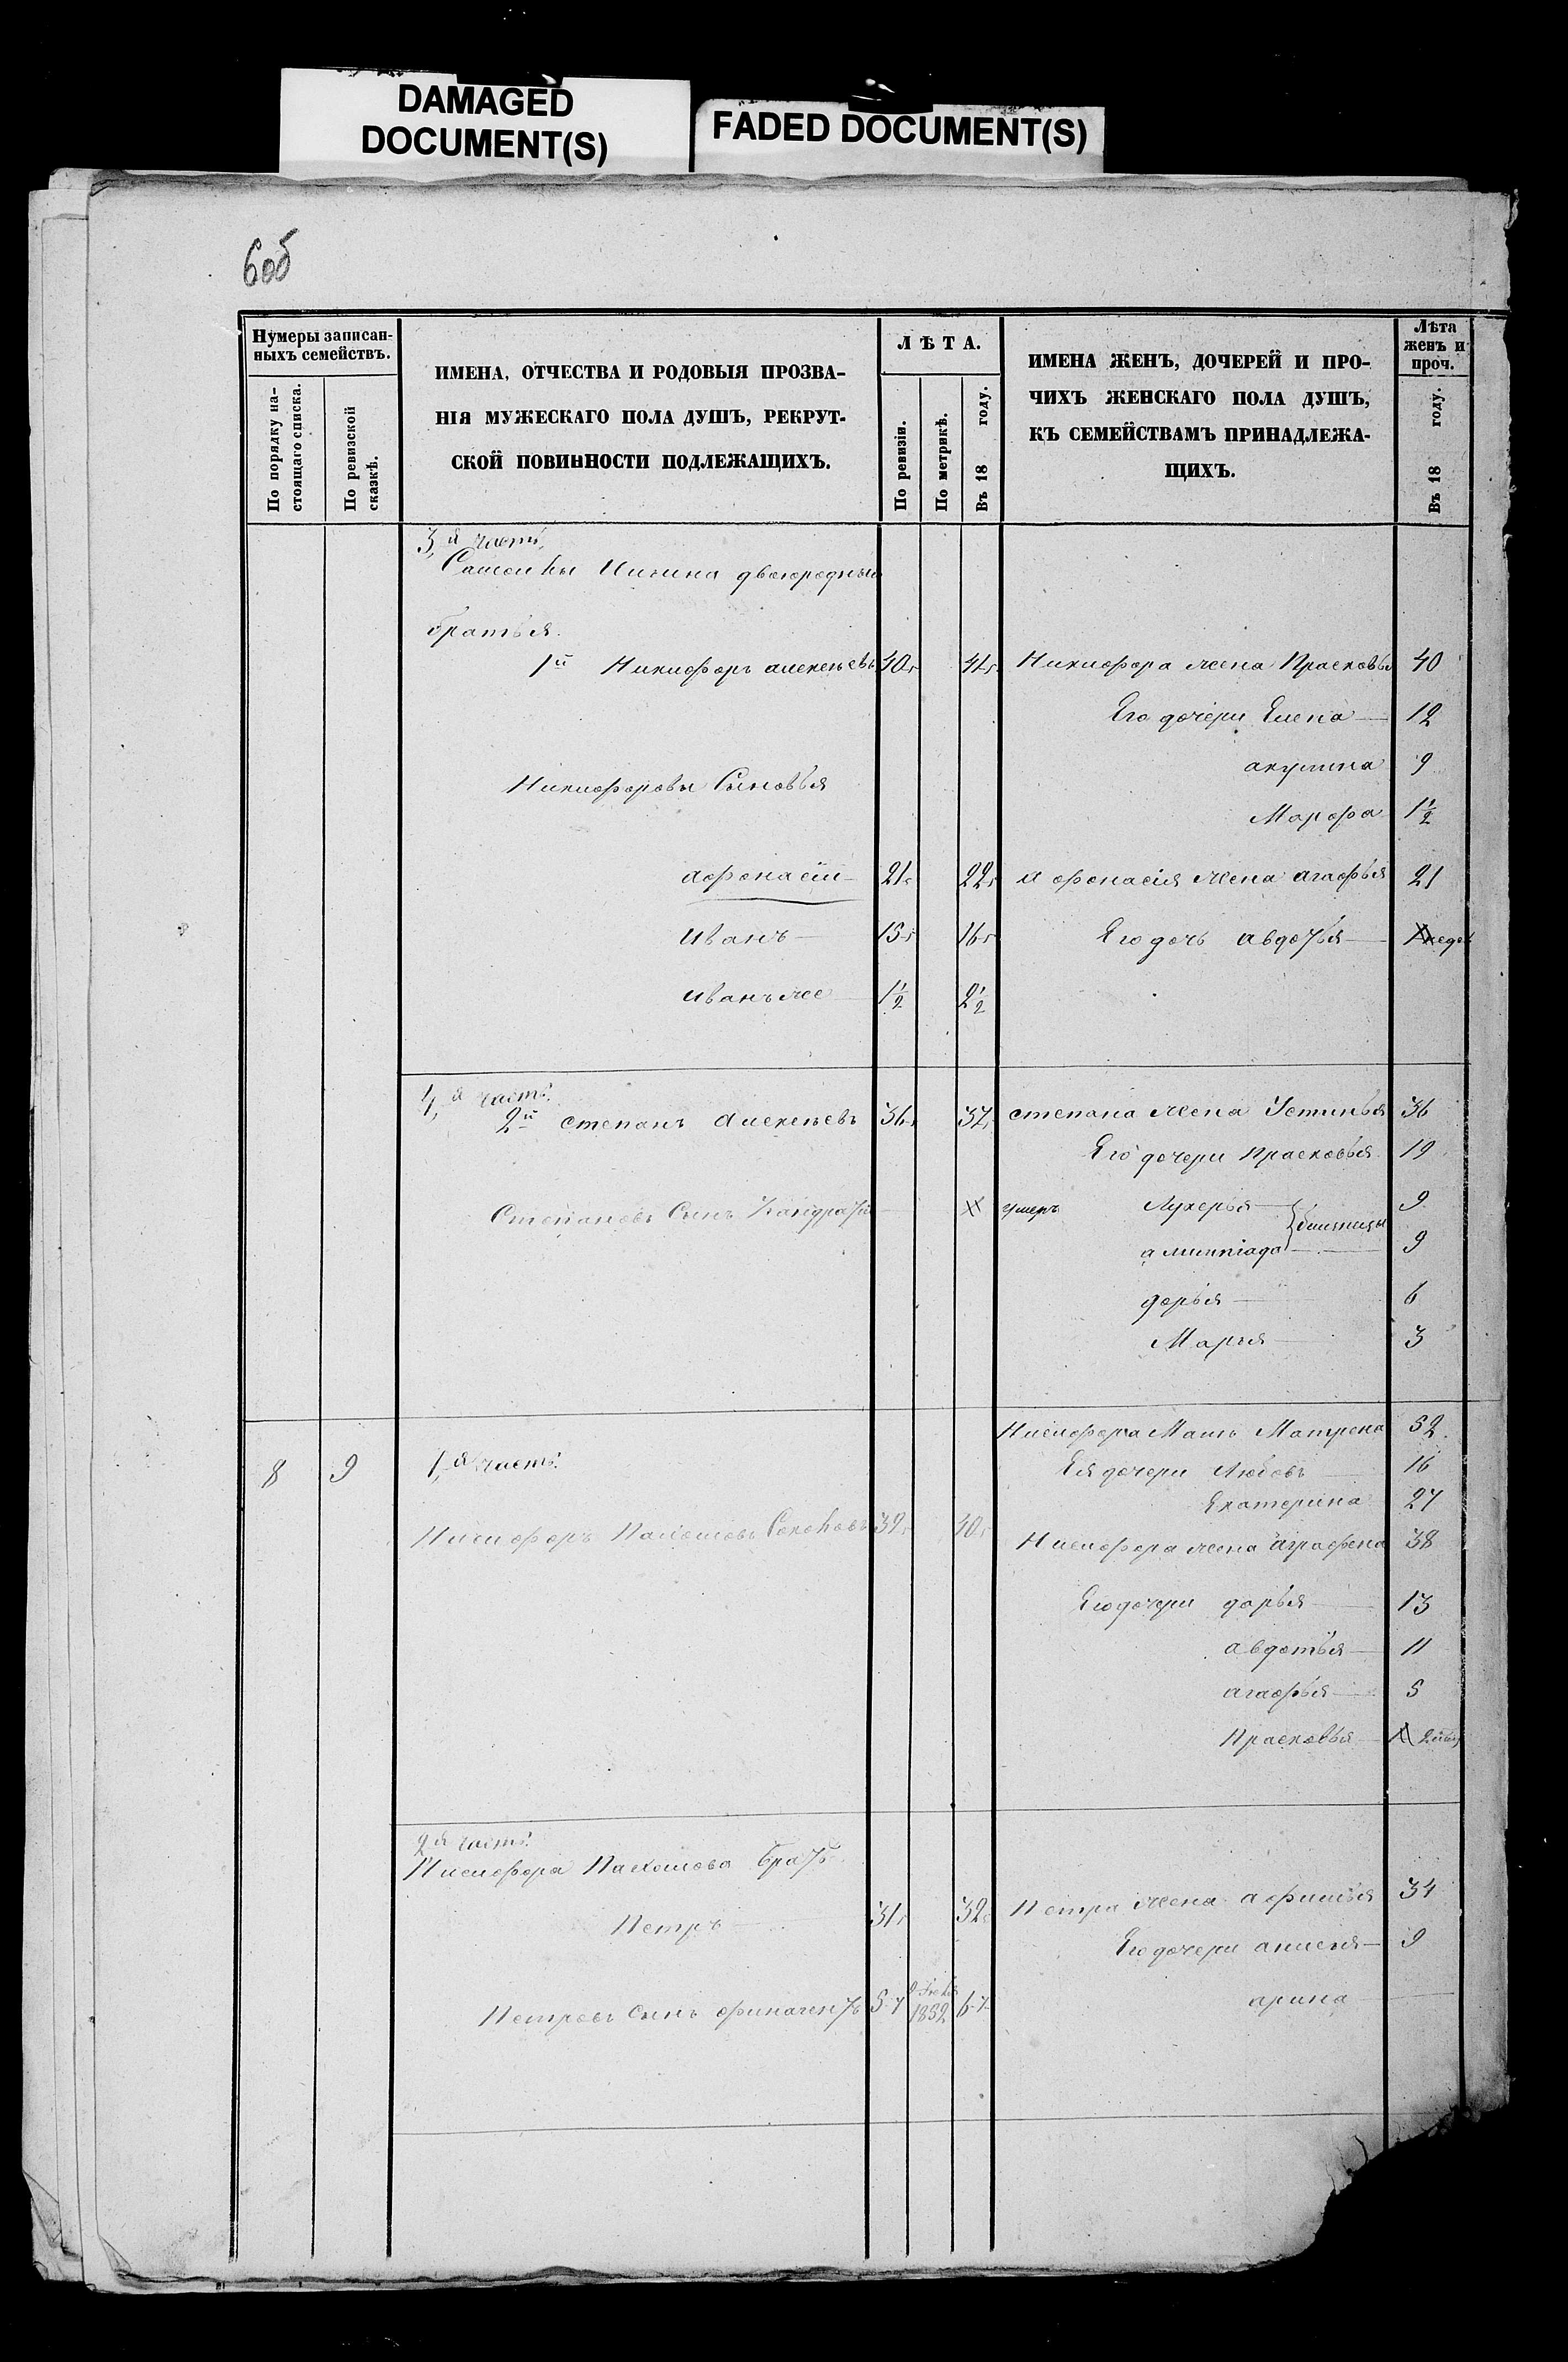 DAMAGED
DOCUMENT(S)
FADED DOCUMENT(S)
6об
Нумеры записан-
ныхъ семействъ.
По порядку на-
стоящаго списка.
По ревизской
сказкѣ.
ИМЕНА, ОТЧЕСТВА И РОДОВЫЯ ПРОЗВА-
НІЯ МУЖЕСКАГО ПОЛА ДУШЪ, РЕКРУТ-
СКОЙ ПОВИННОСТИ ПОДЛЕЖАЩИХЪ.
ЛѢТА.
По ревизіи.
По метрикѣ.
Въ 18 году.
ИМЕНА ЖЕНЪ, ДОЧЕРЕЙ И ПРО-
ЧИХЪ ЖЕНСКАГО ПОЛА ДУШЪ,
КЪ СЕМЕЙСТВАМЪ ПРИНАДЛЕЖА-
ЩИХЪ.
Лѣта
женъ и
проч.
Въ 18 году.
3,я часть,
двоюродный
братья.
1й Никифоръ алексѣевъ 40 41 Никифора жена Прасковья 40
Его дочери Елена 12
акулина 9
Никифоровы Сыновья
Марфа 1 1/2
афонасій 21 22 афонасія жена агафья 21
Иванъ 15 16 Его дочь авдотья недѣ
Иванъ же 1 1/2 2 1/2
4,я часть.
2й степанъ алексѣевъ 36 37 степана жена Устинья 36
Его дочери прасковья 19
Степановъ Сынъ Кандратій умеръ Лукерья 9
алимпіада 9
близницы
дарья 6
Марья 3
8 9 1,я часть.
Никифора Мать Матрена 52
Ея дочери Любовь 16
Екатерина 27
Никифоръ 39 40
Никифора жена аграфена 38
Его дочери дарья 13
авдотья 11
агафья 5
Прасковья
2я часть.
Никифора братъ
Петръ 31 32 Петра жена афимья 34
Его дочери аксенья 9
Петровъ сынъ 5 1852 6 арина